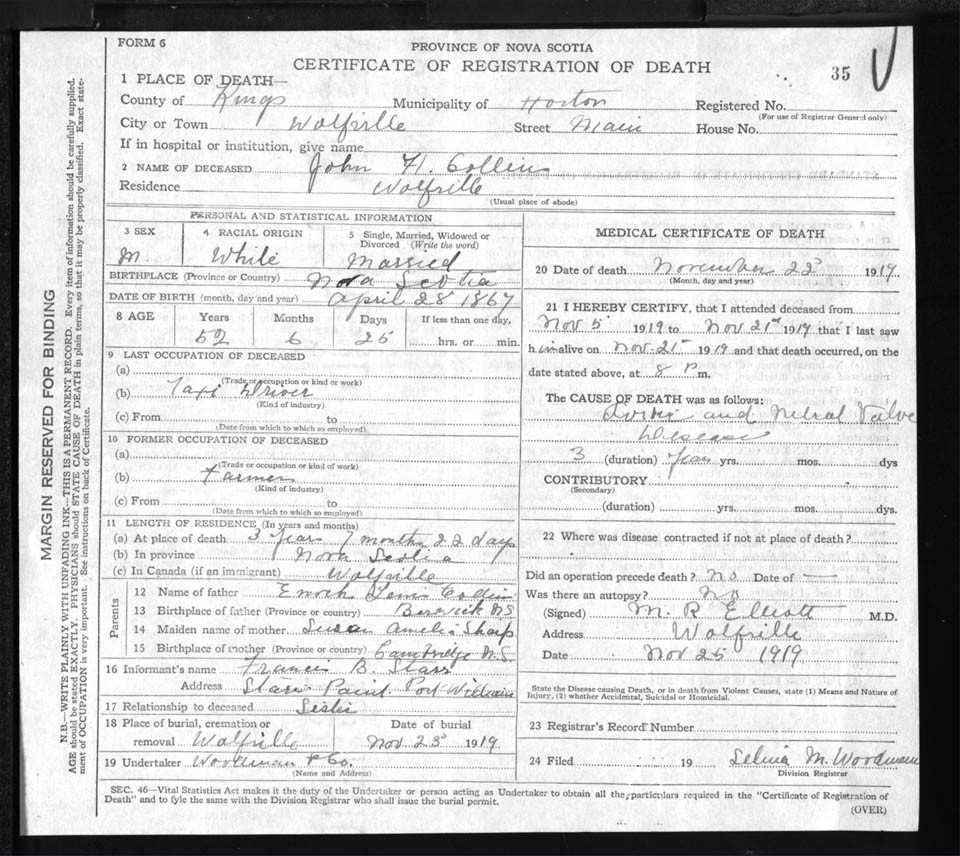 FORM 6
PROVINCE OF NOVA SCOTIA
CERTIFICATE OF REGISTRATION OF DEATH
35
1 PLACE OF DEATH—
County of Kings Municipality of Horton Registered No.
(For use of Registrar General only)
City or Town Wolfville Street Main House No.
If in hospital or institution, give name
2 NAME OF DECEASED John H. Collins
Residence Wolfville
(Usual place of abode)
PERSONAL AND STATISTICAL INFORMATION
3 SEX 4 RACIAL ORIGIN 5 Single, Married, Widowed or Divorced (Write the word)
M. White Married
BIRTHPLACE (Province or Country) Nova Scotia
DATE OF BIRTH (month, day and year) April 28 1867
8 AGE Years Months Days If less than one day,
52 6 25 hrs. or min.
9 LAST OCCUPATION OF DECEASED
(a)
(Trade or occupation or kind or work)
(b) Taxi Driver
(Kind of industry)
(c) From to
(Date from which to which so employed)
10 FORMER OCCUPATION OF DECEASED
(a)
(Trade or occupation or kind of work)
(b) Farmer
(Kind of industry)
(c) From to
(Date from which to which so employed)
11 LENGTH OF RESIDENCE (In years and months)
(a) At place of death 3 Years 7 months 22 days
(b) In province Nova Scotia
(c) In Canada (if an immigrant) Wolfville
Parents
12 Name of father Enoch Collins
13 Birthplace of father (Province or country) Berwick N.S.
14 Maiden name of mother Susan Amelia Sharp
15 Birthplace of mother (Province or country) Cambridge N.S.
16 Informant's name B. Starr
Address Starrs Point Port Williams
17 Relationship to deceased
18 Place of burial, cremation or Date of burial
removal Wolfville Nov 23 1919
19 Undertaker Woodman & Co.
(Name and Address)
MEDICAL CERTIFICATE OF DEATH
20 Date of death November 22 1919
(Month, day and year)
21 I HEREBY CERTIFY, that I attended deceased from
Nov 5 1919 to Nov 21st 1919 that I last saw
him alive on Nov 21st 1919 and that death occurred, on the
date stated above, at 8 P m.
The CAUSE OF DEATH was as follows:
and Valve
Disease
3 (duration) Years yrs. mos. dys
CONTRIBUTORY
(Secondary)
(duration) yrs. mos. dys.
22 Where was disease contracted if not at place of death?
Did an operation precede death? No Date of —
Was there an autopsy? No
(Signed) M. R Elliott M.D.
Address Wolfville
Date Nov 25 1919
State the Disease causing Death, or in death from Violent Causes, state (1) Means and Nature of
Injury, (2) whether Accidental, Suicidal or Homicidal.
23 Registrar's Record Number
24 Filed 19 M. Woodman
Division Registrar
SEC. 46—Vital Statistics Act makes it the duty of the Undertaker or person acting as Undertaker to obtain all the particulars required in the "Certificate of Registration of
Death" and to file the same with the Division Registrar who shall issue the burial permit.
(OVER)
MARGIN RESERVED FOR BINDING
N.B.—WRITE PLAINLY WITH UNFADING INK—THIS IS A PERMANENT RECORD. Every item of information should be carefully supplied.
AGE should be stated EXACTLY. PHYSICIANS should STATE CAUSE OF DEATH in plain terms, so that it may be properly classified. Exact state-
ment of OCCUPATION is very important. See instructions on back of Certificate.